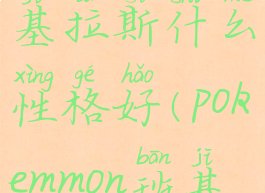 基拉斯什么
xìng gé hǎo
性格好(pok
bān jī
emmon班基